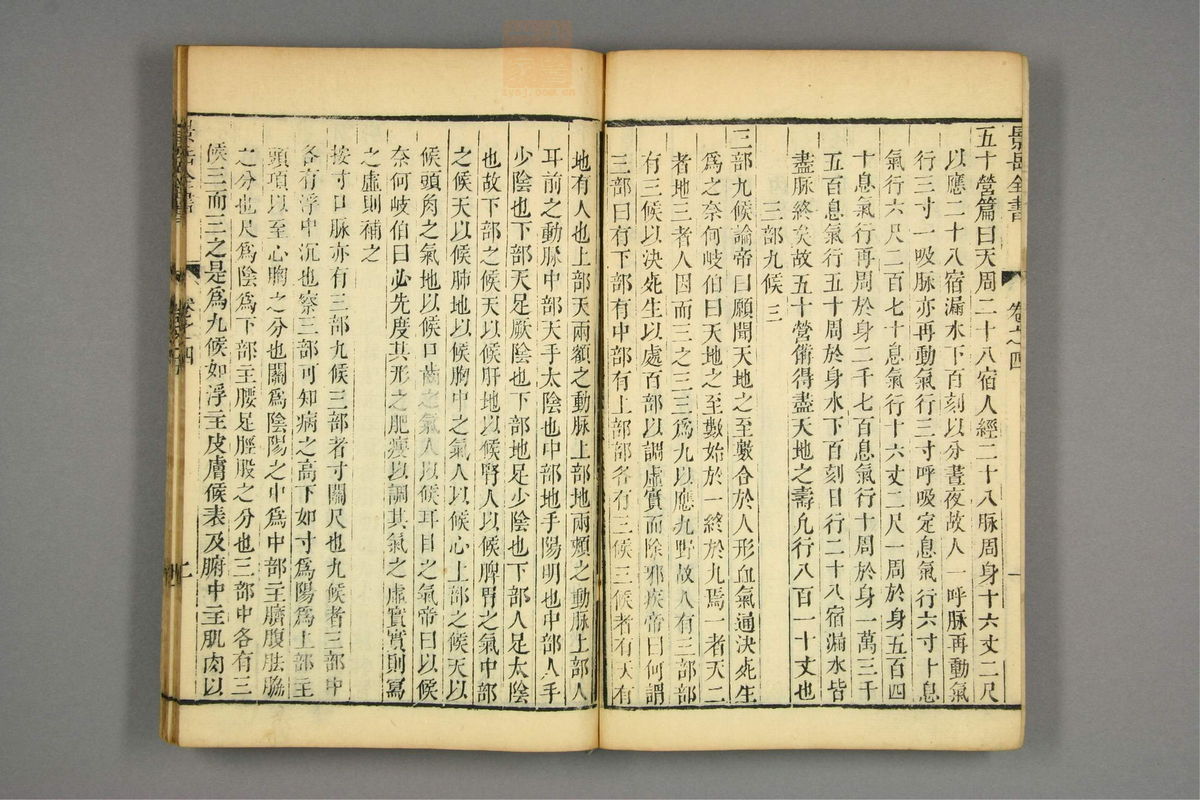 景岳全書
卷之四
一
五十營篇曰天周二十八宿人經二十八脉周身十六丈二尺
以應二十八宿漏水下百刻以分晝夜故人一呼脉再動氣
行三寸一吸脉亦再動氣行三寸呼吸定息氣行六寸十息
氣行六尺二百七十息氣行十六丈二尺一周於身五百四
十息氣行再周於身二千七百息氣行十周於身一萬三千
五百息氣行五十周於身水下百刻日行二十八宿漏水皆
盡脉終矣故五十營備得盡天地之壽凢行八百一十丈也
三部九候 三
三部九候論帝曰願聞天地之至數合於人形血氣通决死生
爲之奈何岐伯曰天地之至數始於一終於九焉一者天二
者地三者人因而三之三三爲九以應九野故人有三部部
有三候以决死生以處百部以調虛實而除邪疾帝曰何謂
三部曰有下部有中部有上部部各有三候三候者有天有
地有人也上部天兩額之動脉上部地兩頰之動脉上部人
耳前之動脉中部天手太陰也中部地手陽明也中部人手
少陰也下部天足厥陰也下部地足少陰也下部人足太陰
也故下部之候天以候肝地以候腎人以候脾胃之氣中部
之候天以候肺地以候胸中之氣人以候心上部之候天以
候頭角之氣地以候口齒之氣人以候耳目之氣帝曰以候
奈何岐伯曰必先度其形之肥瘦以調其氣之虛實實則寫
之虛則補之
按寸口脉亦有三部九候三部者寸關尺也九候者三部中
各有浮中沉也察三部可知病之高下如寸爲陽爲上部主
頭項以至心胸之分也關爲陰陽之中爲中部主臍腹胠脇
之分也尺爲陰爲下部主腰足脛股之分也三部中各有三
候三而三之是爲九候如浮主皮膚候表及腑中主肌肉以
卷之四
二